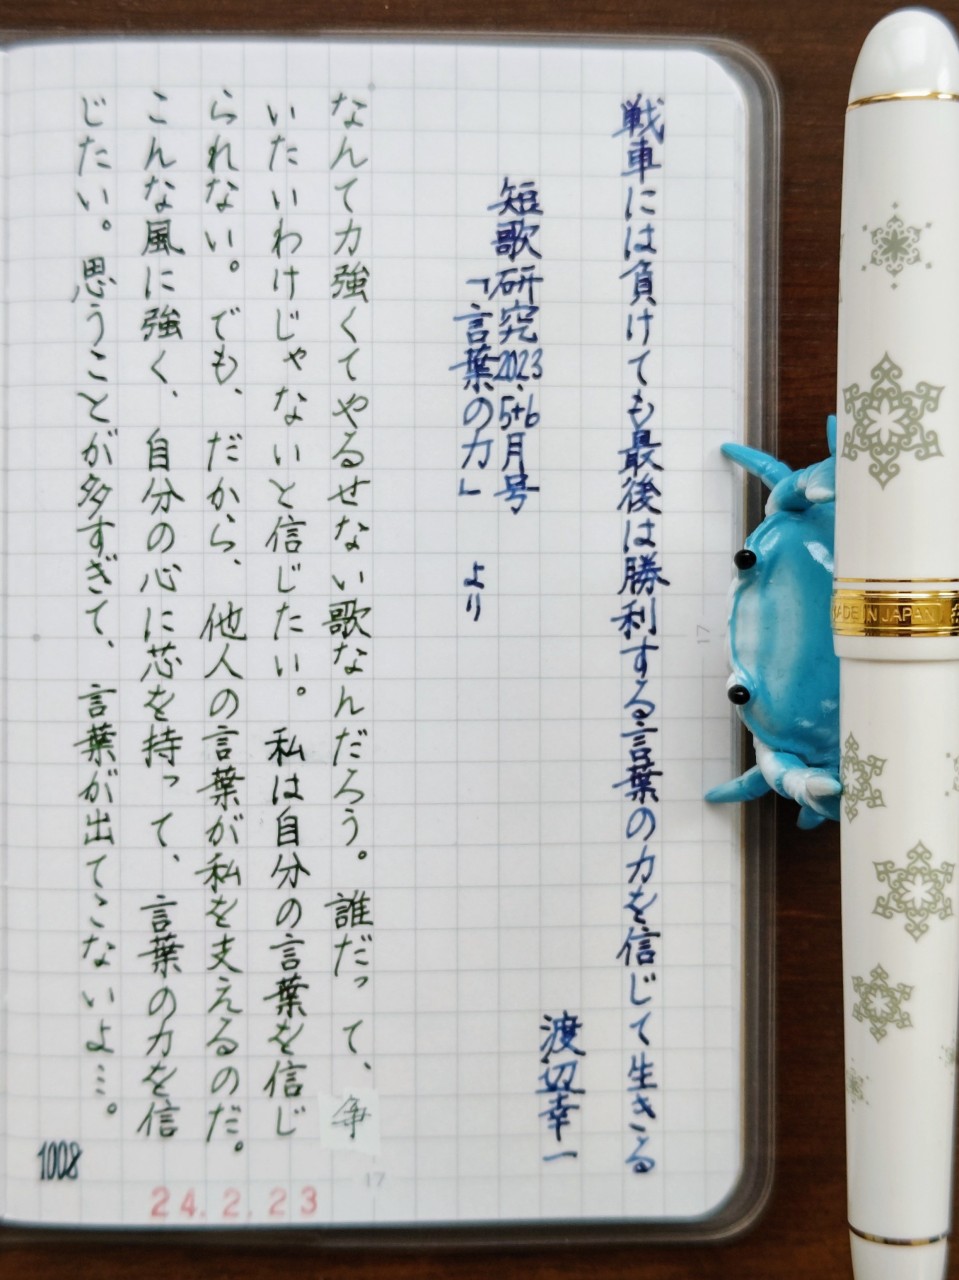 戦車には負けても最後は勝利する言葉の力を信じて生きる
渡辺幸一
短歌研究2023.5+6月号
「言葉の力」 より
なんて力強くてやるせない歌なんだろう。誰だって、争
いたいわけじゃないと信じたい。私は自分の言葉を信じ
られない。でも、だから、他人の言葉が私を支えるのだ。
こんな風に強く、自分の心に芯を持って、言葉の力を信
じたい。思うことが多すぎて、言葉が出てこないよ…。
1008
24.2.23
17
17
MADE IN JAPAN